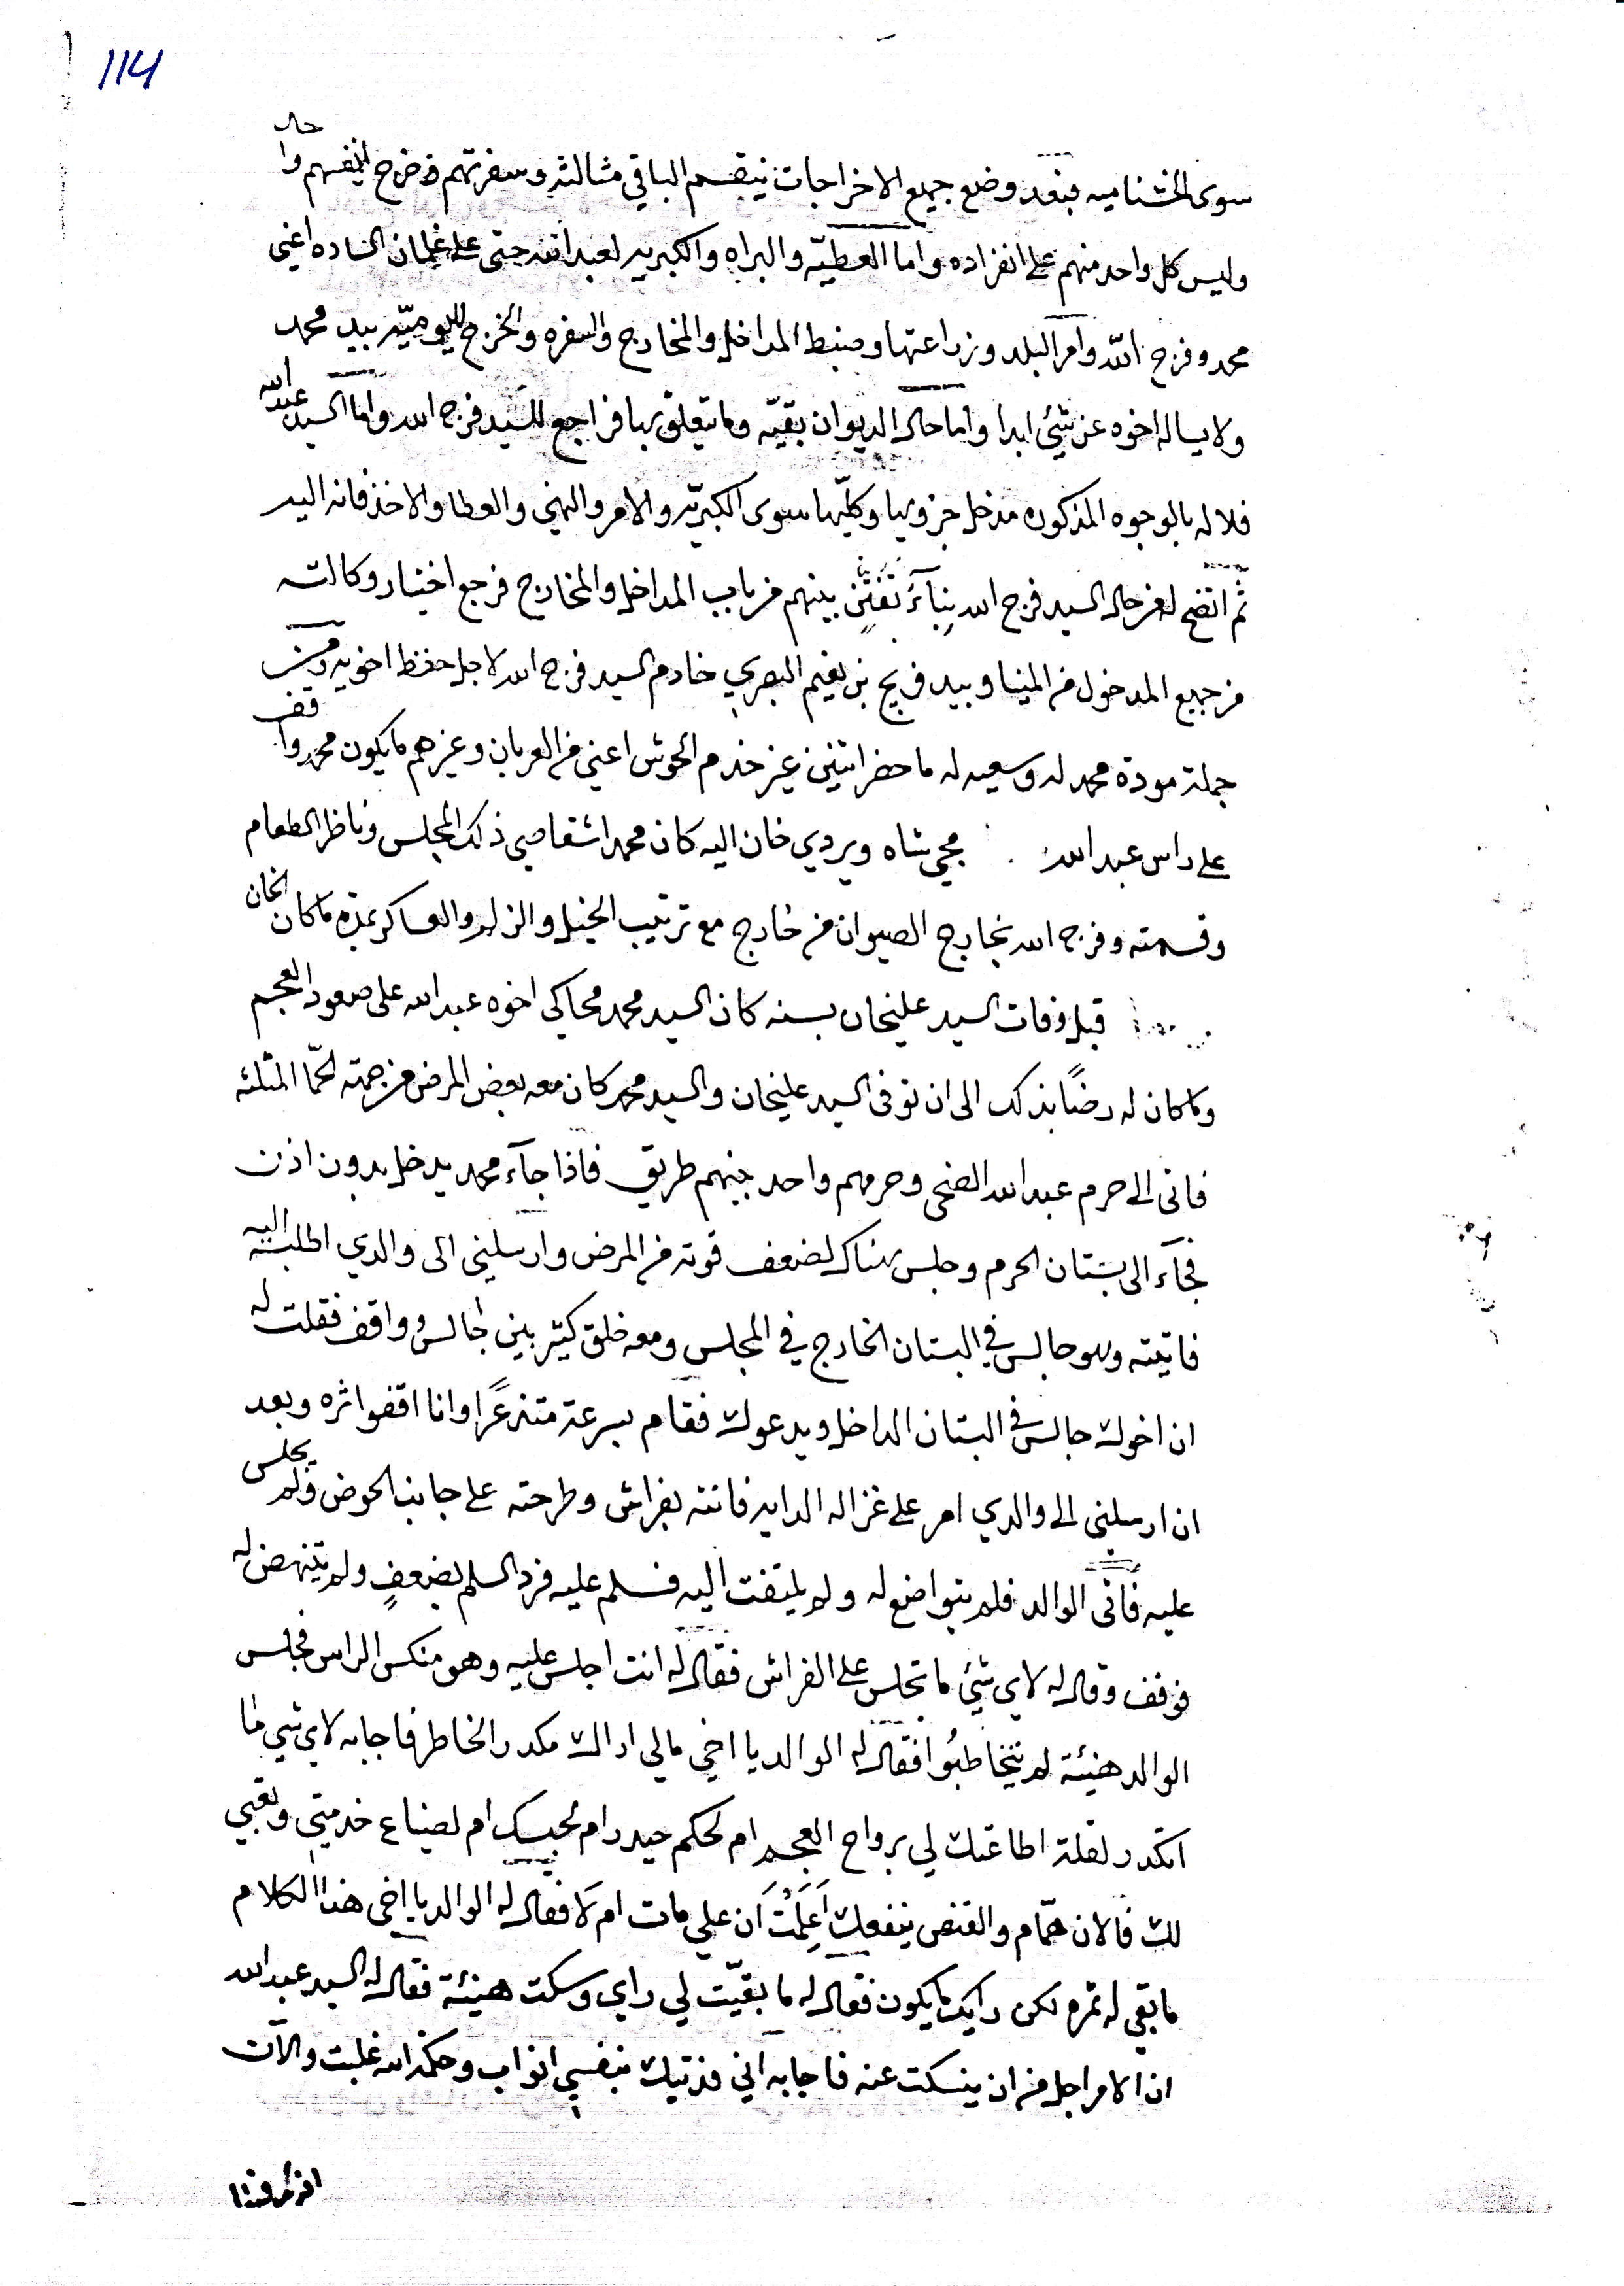 114
سوى الخشناميه فبعد وضع جميع الاخراجات ينقسم الباقي مثالثه وسفرتهم وخرج انفسهم واحد
وليس كل واحد منهم على انفراده واما العطيّه والبراه والكبريه لعبد الله حتى على غلمان الساده اعني
محمد وفرج الله وامر البلد وزراعتها وضبط المداخل والمخارج والسفره والخرج لليوميّه بيد محمد
ولا يساله اخوه عن شيئ ابدا واما حال الديوان بقيّه وما يتعلق بها فراجع للسيد فرج الله واما السيد عبد الله
فلا له بالوجوه المذكوره مدخل جزويها وكليّها سوى الكبريّه والامر والنهي والعطا والاخذ فانه اليه
ثم اتضح له من حال السيد فرج الله بناءً بينهم من باب المداخل والمخارج فرجع اختيار وكالته
من جميع المدخول من المينا وبيد فريج بن البصري خادم السيد فرج الله لاجل حفظ اخويه ومن
جملة مودة محمد له وسعيه له ما حضر اثنين غير خدم الحوش اعني من العربان وغيرهم ما يكون محمد واقف
على راس عبد الله مجي شاه ويردي خان اليه كان محمد اشقاصي ذلك المجلس وناظر الطعام
وقسمته وفرج الله بخارج الصيوان من خارج مع ترتيب الخيل والزلم والعساكر بمدة ما كان الخان
قبل وفات السيد عليخان بسنه كان السيد محمد محاكي اخوه عبد الله على صعود العجم
وما كان له رضًا بذلك الى ان توفى السيد عليخان والسيد محمد كان معه بعض المرض من جهته لحمّا المثلثه
فاتى الى حرم عبد الله الضحى وحرمهم واحد بينهم طريق فاذا جآء محمد يدخل بدون اذن
فجآء الى بستان الحرم وجلس هناك لضعف قوته من المرض وارسلني الى والدي اطلبه اليه
فاتيته وهو جالس في البستان الخارج في المجلس ومعه خلق كثير بين جالس وواقف فقلت له
ان اخوك جالس في البستان الداخل ويدعوك فقام بسرعة متذعرًا وانا اقفو اثره وبعد
ان ارسلني الى والدي امر على غزاله الدايه فاتته بفراش وطرحته على جانب الحوض ولم يجلس
عليه فاتى الوالد فلم يتواضع له ولم يلتفت اليه فسلم عليه فرد السلم بضعفٍ ولم يتنهض له
فوقف وقال له لاي شيئ ما تجلس على الفراش فقال له انت اجلس عليه وهو منكس الراس فجلس
الوالد هنيئة لم يتخاطبُوا فقال له الوالد يا اخي مالي اراك مكدر الخاطر فاجابه لاي شي ما
اتكدر لقلة اطاعتك لي برواح العجم ام لحكم حيدر ام لحبسك ام لضياع خدمتي وتعبي
لك فالان همّام والقنص ينفعك أَعَلِمْتَ أَن علي مات ام لا فقال له الوالد يا اخي هذا الكلام
ما بقي له ثمره لكن رايك ما يكون فقال له ما بقيّت لي راي وسكت هنيئة فقال له السيد عبد الله
ان الامر اجل من ان ينسكت عنه فاجابه اني فديتك بنفسي انواب وحكمة الله غلبت والآن